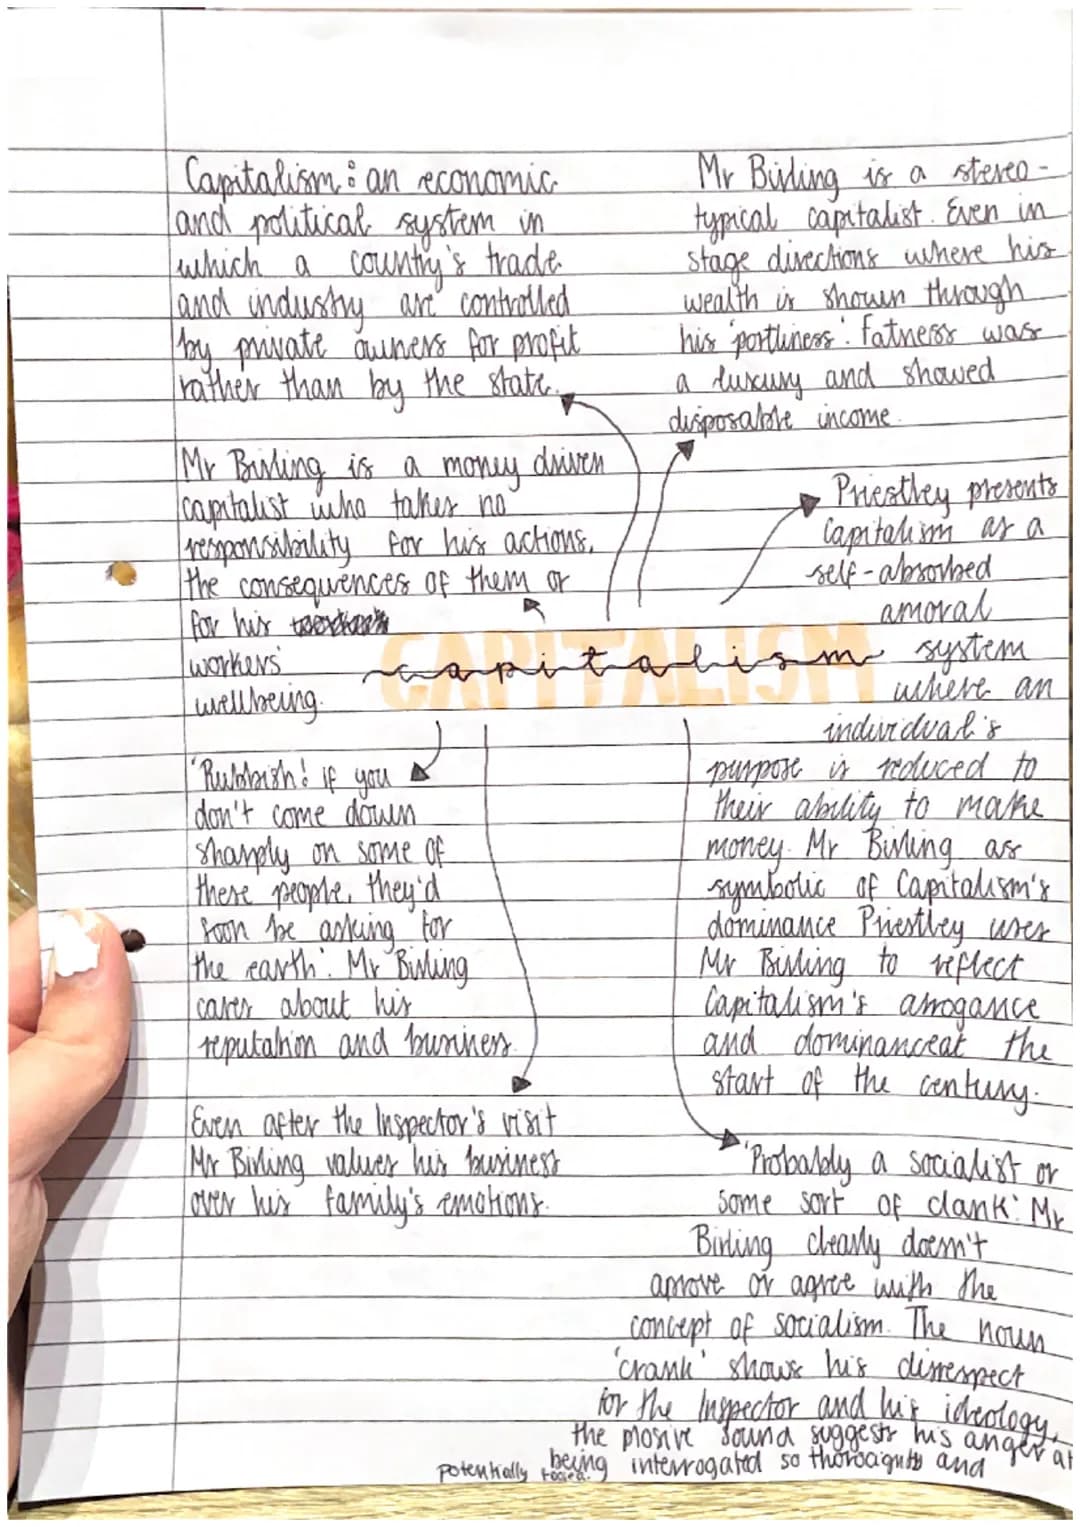 Capitalism: an economic
and political system in
which a country's trade
and industry are controlled
by private owners for profit
rather than by the state.
Mr Birling is a stereo-
typical capitalist. Even in
stage directions where his
wealth is shown through
his 'portliness'. Fatness was
a luxury and showed
disposable income.
Mr Birling is a money driven
capitalist who takes no
responsibility for his actions,
the consequences of them or
for his
workers'
wellbeing.
Priestley presents
Capitalism as a
self-absorbed
amoral
system
where an
individual's
purpose is reduced to
their ability to make
money. Mr Birling as
symbolic of Capitalism's
dominance Priestley uses
Mr Birling to reflect
Capitalism's arrogance
and dominanceat the
start of the century.
CAPITALISM
capitalism
'Rubbish! if you
don't come down
sharply on some of
these people, they'd
soon be asking for
the earth'. Mr Birling
cares about his
reputation and business.
Even after the Inspector's visit
Mr Birling values his business
over his family's emotions.
'Probably a socialist or
some sort of clank'. Mr
Birling clearly doesn't
aprove or agree with the
concept of socialism. The noun
'crank' shows his disrespect
for the Inspector and his ideology,
the plosive sound suggests his anger at
being interrogated so thoroughly and
potentially